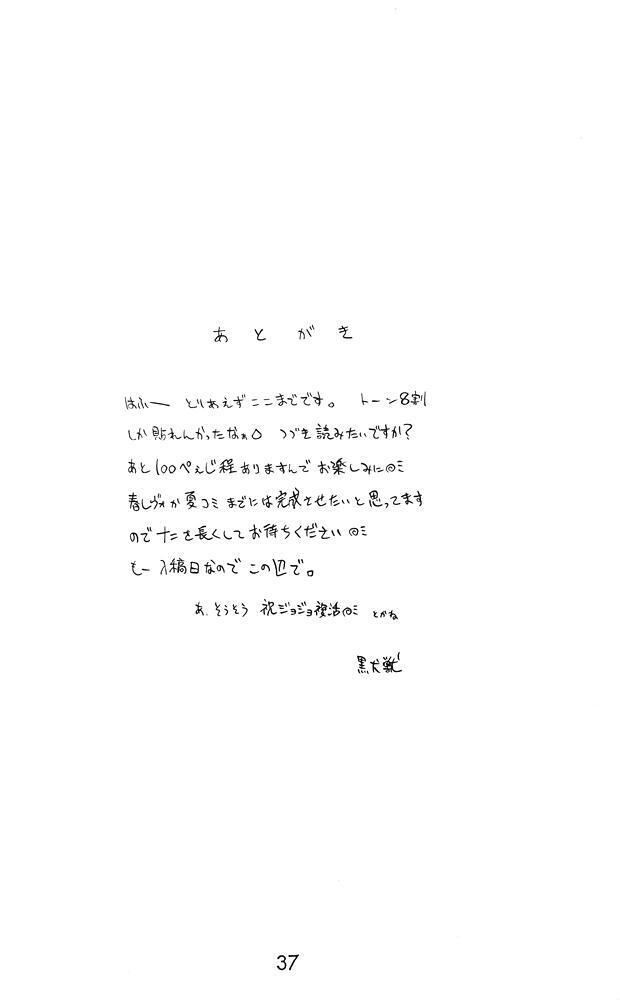 あとがき
はふー とりあえずここまでです。 トーン8割
しか貼れんかったなぁ つづき読みたいですか?
あと100ぺぇじ程ありますんでお楽しみに
春レヴォか夏コミまでには完成させたいと思ってます
のでナニを長くしてお待ちください
もー入稿日なのでこの辺で。
あ、そうそう 祝ジョジョ復活 とかね
黒犬獣
37